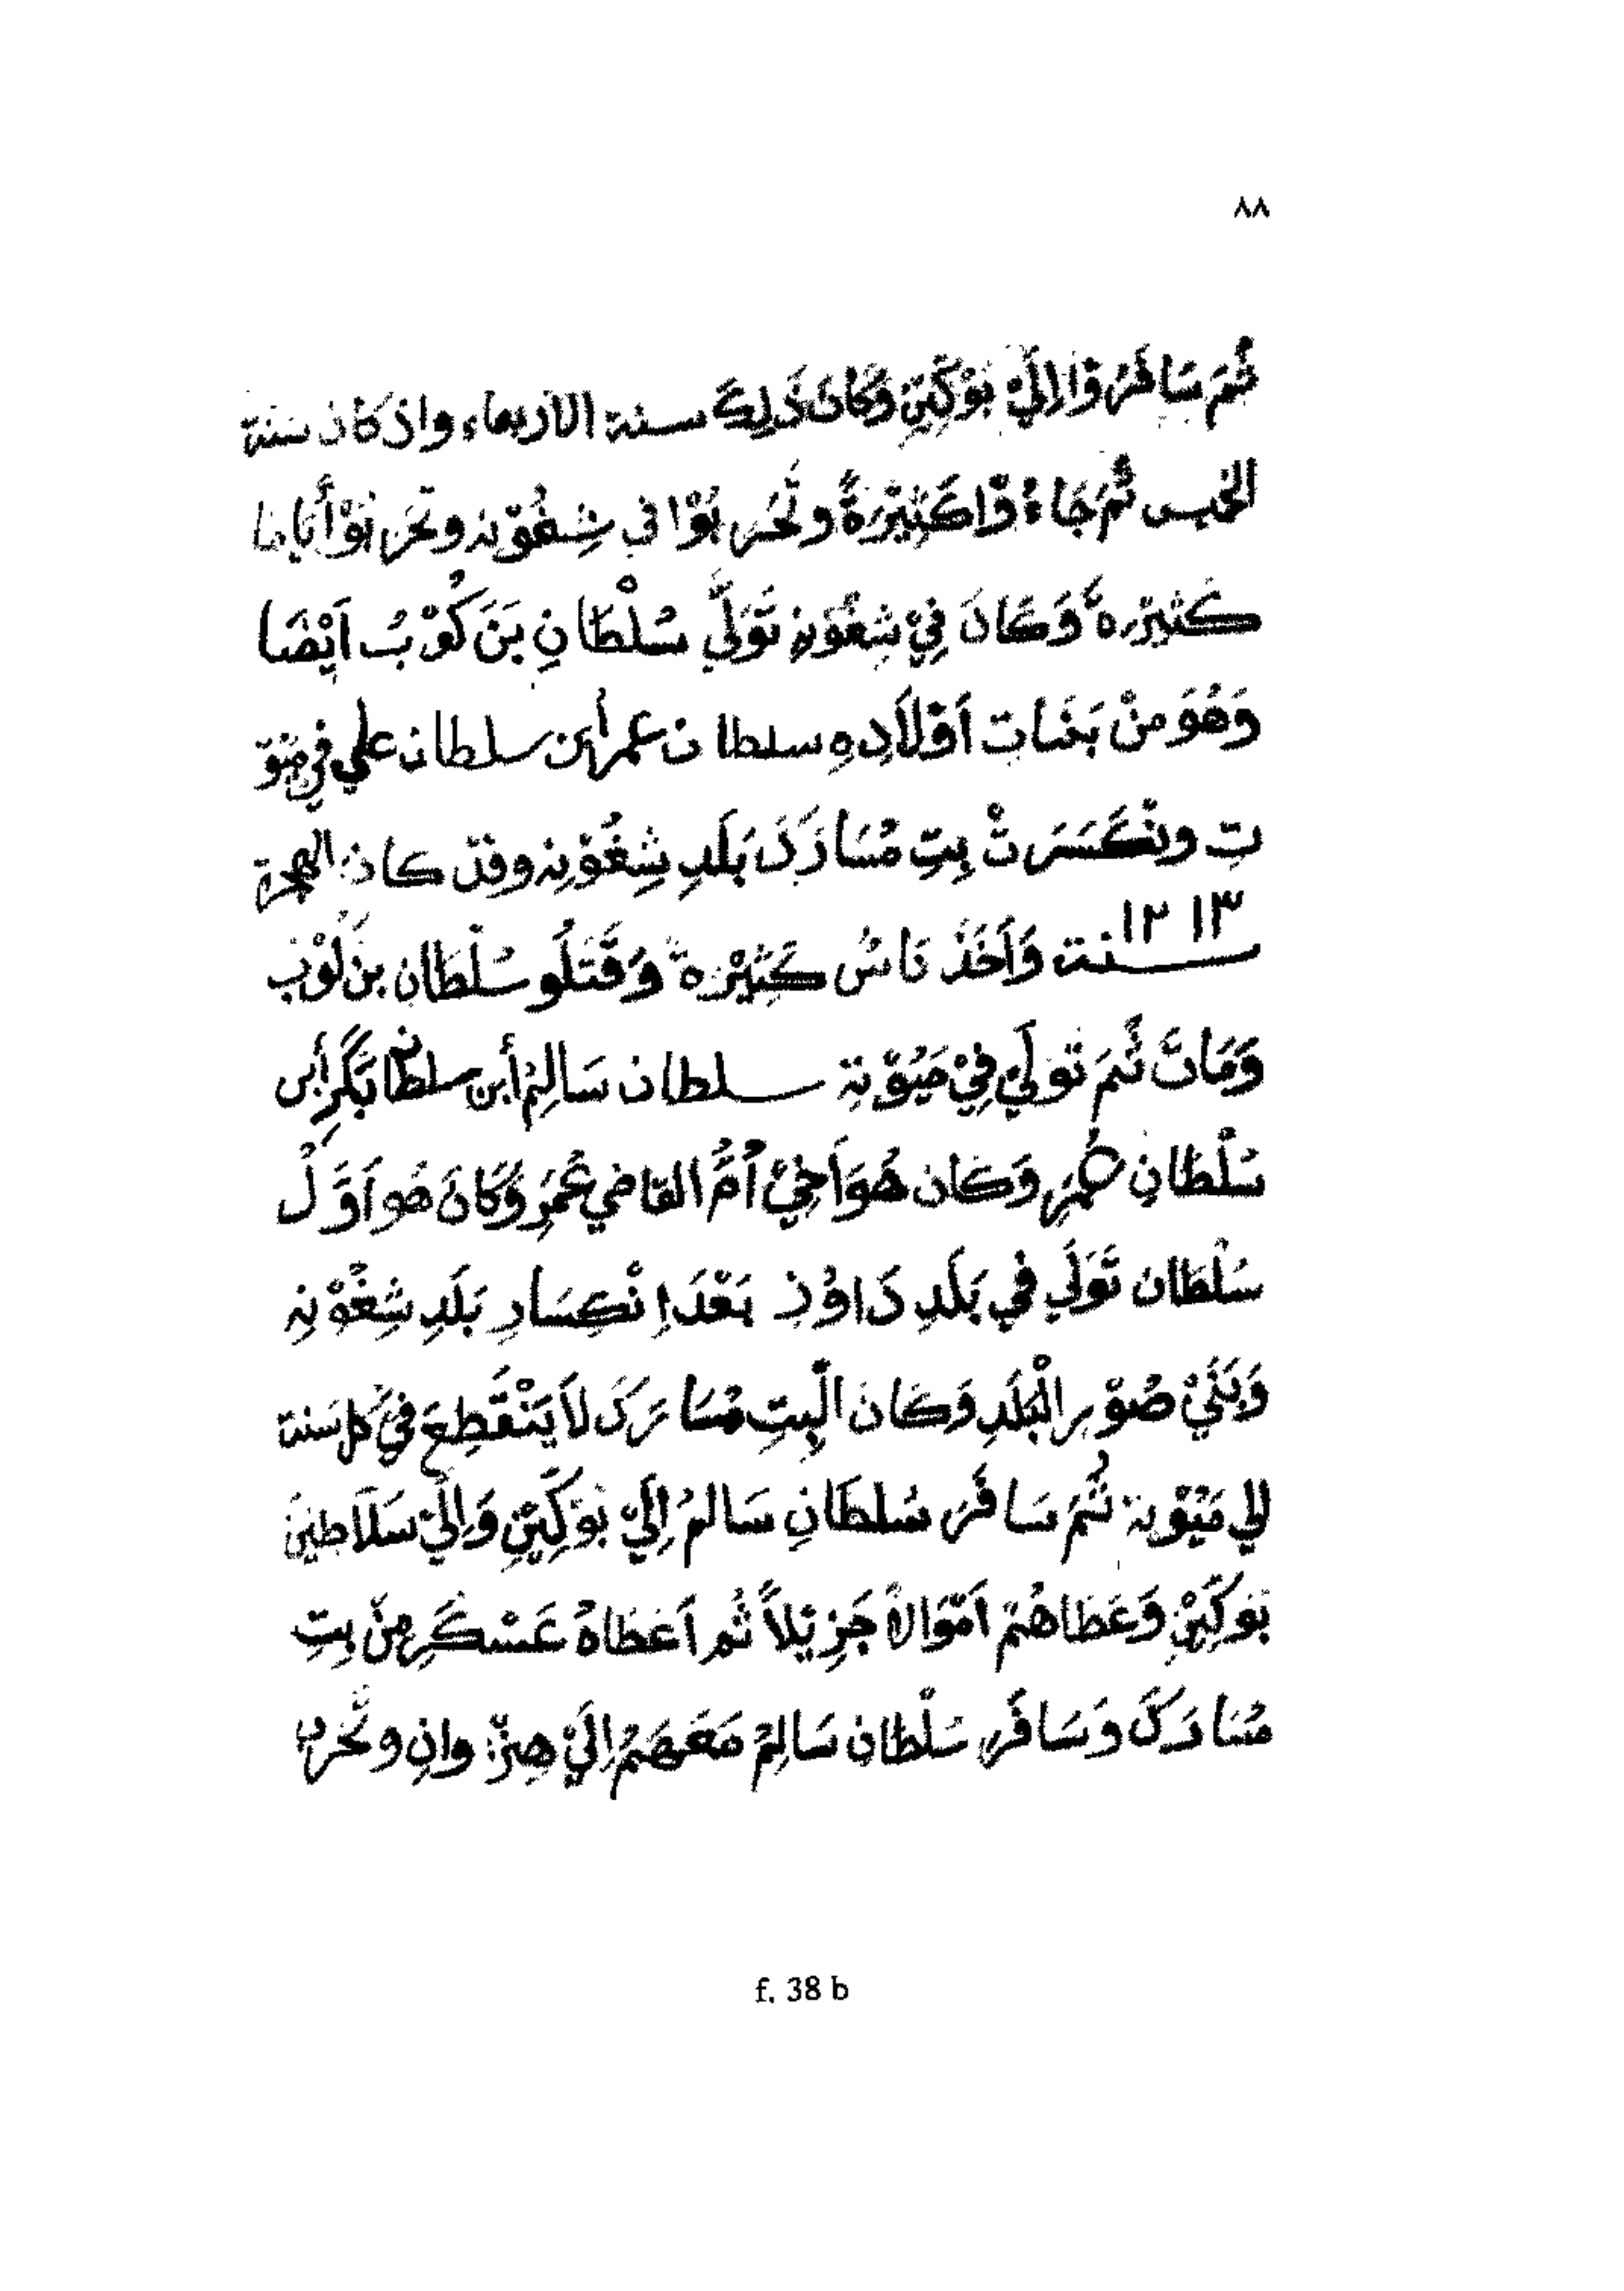 ٨٨
ثُمَّ سَافَرُوْا اِلَيْ بَوْكِيْنِ وَكَانَ ذَلِكَ سنة الاربعاء واذ كان سنة
الخميس ثُمَّ جَاءُوْا كَثِيْرَةً وتَحَرَبُوْا في شِغُوْنِه وتَحَرَبَوْا أَيَّامًا
كَثِيْرَةً وَكَانَ فِيْ شِغُوْنِهِ تَوَلَّي سُلْطَانِ بَنَ كُوْبُ اَيْضَا
وَهُوَ مِنْ بَنَاتِ اَوْلاَدِهِ سلطان عمر أبن سلطان علي في مَيُوْ
تِ ونْكَسَرَتْ بِتِ مُسَازَكَ بَلَدِ شِغُوْنِه وقد كان الهجرة
١٢١٣
سنة وَاَخَذَ نَاسُ كَثِيْرَة وَقَتَلُو سُلْطَانِ بن كُوْبُ
وَمَاتَ ثُمَ تَوَلَّي فِيْ مَيُوْتِة سلطان سَالِمْ أبن سلطان بَكَرِ أبن
سُلْطَانِ عمر وَكَان هُوَ اَخِيْ اُمُّ القاضي عُمَرِ وَكَانَ هُو اَوَّلْ
سُلْطَان تَوَلَّي في بَلَدِ دَاوُدْ بَعْدَ اِنْكِسَارِ بَلَدِ شِغُوْنِه
وَبَنَيْ صُوْر الْبَلَدِ وَكَان الْبِتِ مُسَازَكَ لاَ يَنْقَطِعَ فِيْ كل سَنة
اِلي مَيُوْتة ثُمَّ سَافَرَ سُلطَانِ سَالمُ اِلَيْ بَوْكِيْنِ وَاِلَيْ سَلاَطِيْنَ
بَوكِيْنِ وَعَطَاهُمْ اَمْوَالاً جَزِيْلاً ثُم اَعْطَاهُ عَسْكَرِ مِنْ بِتِ
مُسَازَكَ وَسَافَرَ سُلْطَان سَالِمْ مَعَهَمُ اِلَيْ هِنْزُوانِ وتَحَرب
f. 38 b